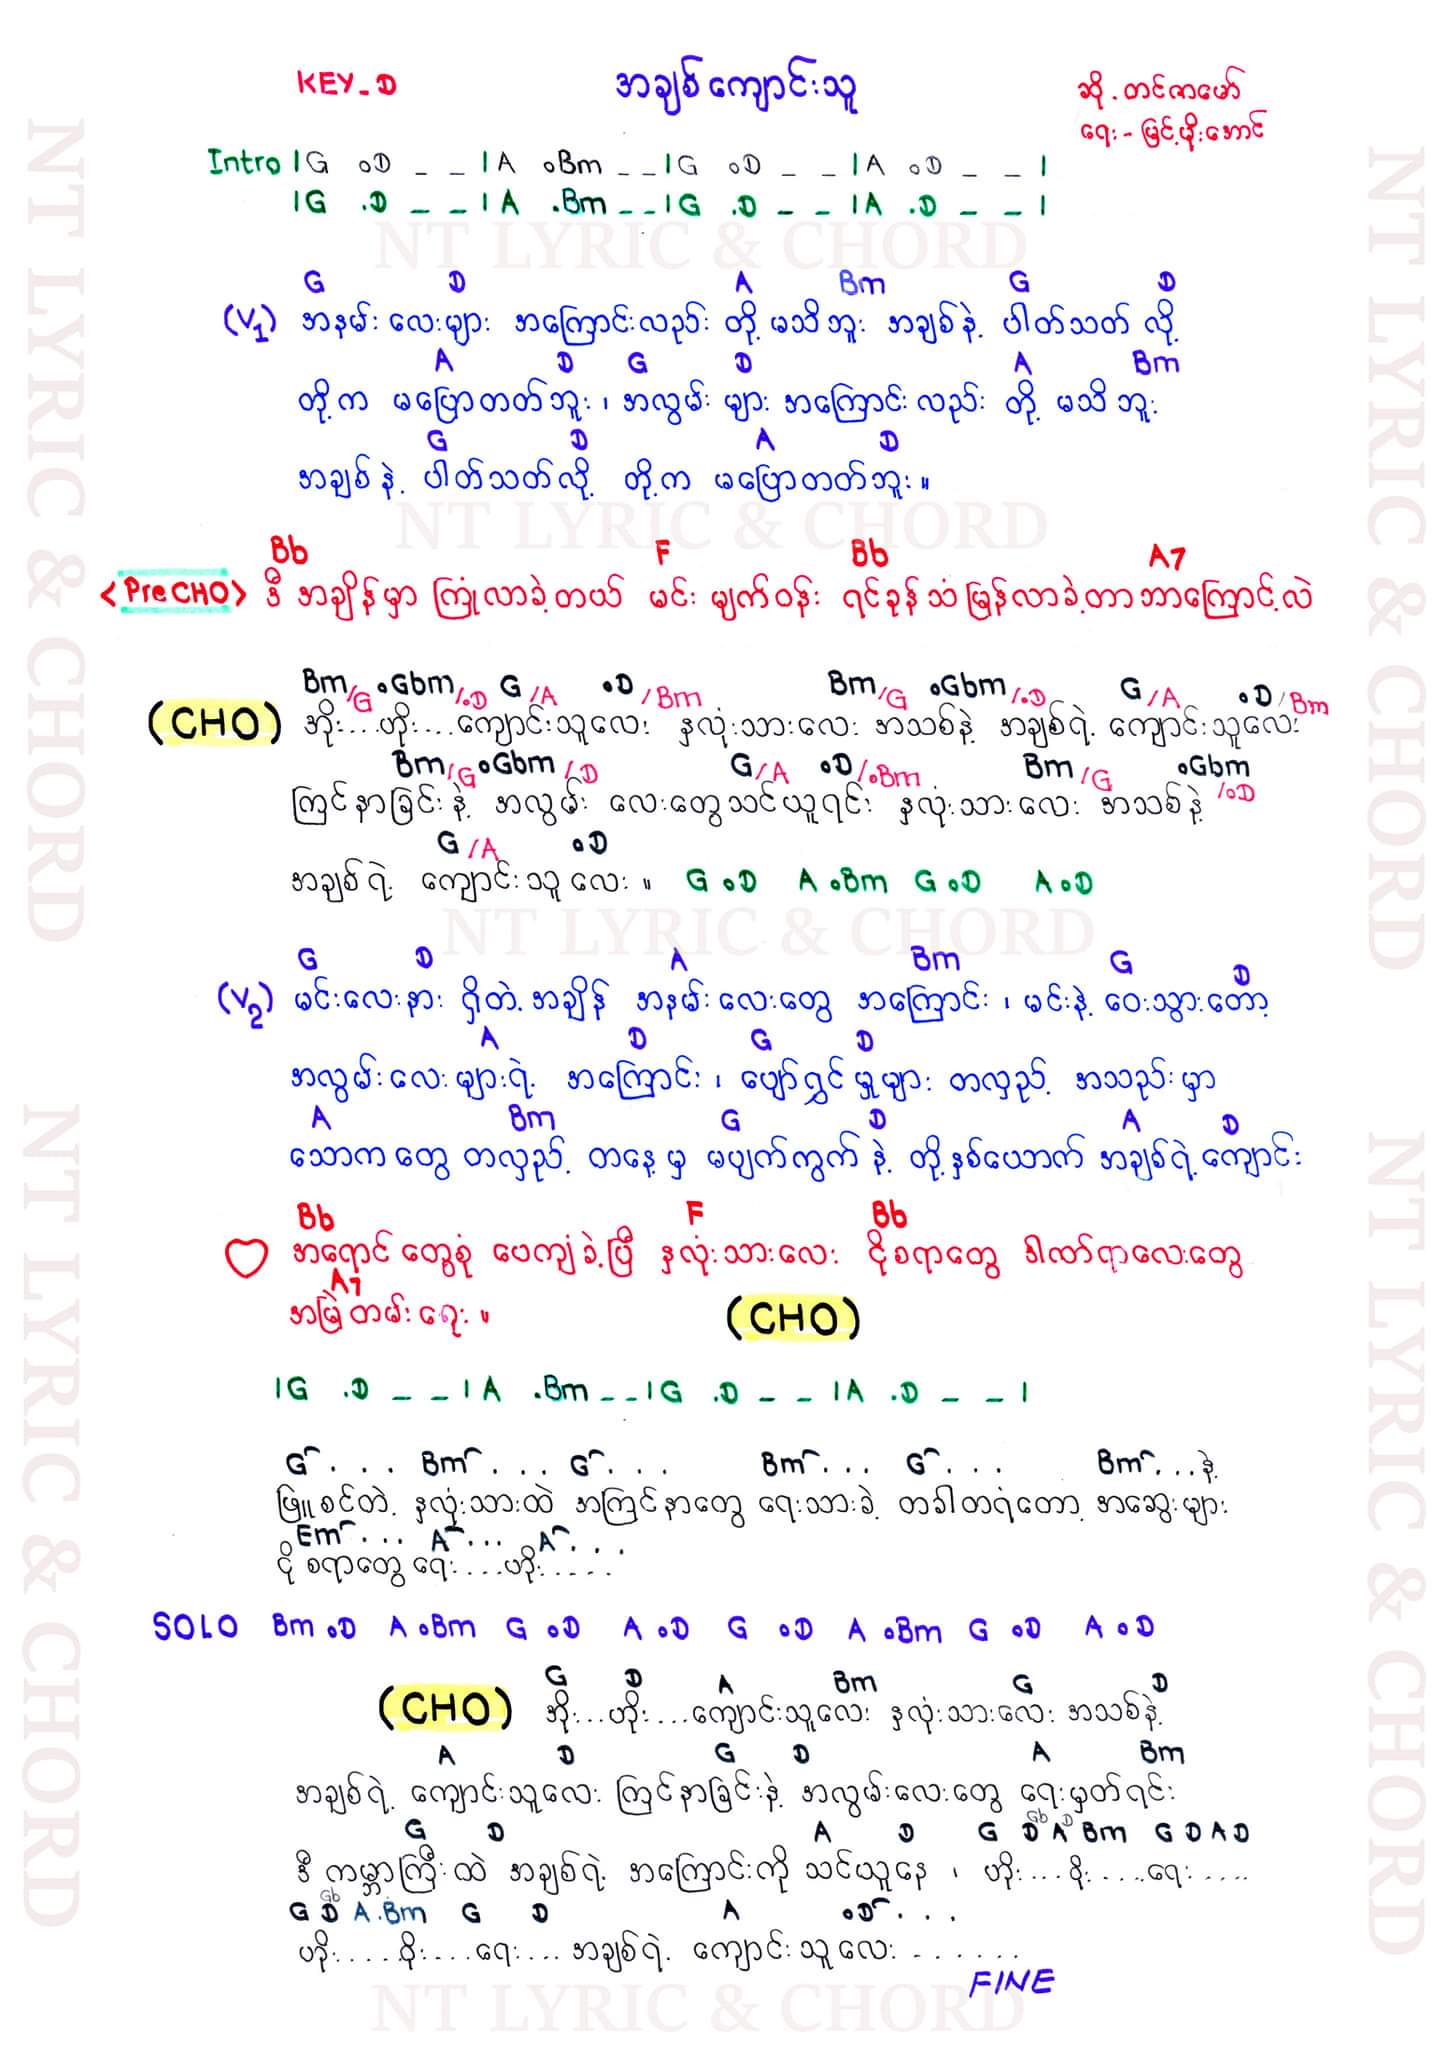 KEY_D
အချစ်ကျောင်းသူ
ဆို . တင်ဇာမော်
ရေး - မြင့်မိုးအောင်
Intro | G .D _ _ | A .Bm _ _ | G .D _ _ | A .D _ _ |
| G .D _ _ | A .Bm _ _ | G .D _ _ | A .D _ _ |
G D A Bm G D
(V1) အနမ်းလေးများ အကြောင်းလည်း တို့ မသိဘူး အချစ်နဲ့ ပါတ်သတ် လို့
A D G D A Bm
တို့က မပြောတတ်ဘူး ၊ အလွမ်း များ အကြောင်းလည်း တို့ မသိဘူး
G D A D
အချစ်နဲ့ ပါတ်သတ်လို့ တို့က မပြောတတ်ဘူး ။
Bb F Bb A7
<PreCHO> ဒီ အချိန်မှာ ကြုံလာခဲ့တယ် မင်း မျက်ဝန်း ရင်ခုန်သံမြန်လာခဲ့တာဘာကြောင့်လဲ
Bm/G .Gbm/.D G/A .D/Bm Bm/G .Gbm/.D G/A .D/Bm
(CHO) အိုး...ဟိုး...ကျောင်းသူလေး နှလုံးသားလေး အသစ်နဲ့ အချစ်ရဲ့ ကျောင်းသူလေး
Bm/G .Gbm/D G/A .D/.Bm Bm/G .Gbm/.D
ကြင်နာခြင်းနဲ့ အလွမ်း လေးတွေသင်ယူရင်း နှလုံးသားလေး အသစ်နဲ့
G/A .D
အချစ်ရဲ့ ကျောင်းသူလေး ။ G.D A.Bm G.D A.D
G D A Bm G D
(V2) မင်းလေးနား ရှိတဲ့အချိန် အနမ်းလေးတွေ အကြောင်း ၊ မင်းနဲ့ ဝေးသွားတော့
A D G D
အလွမ်းလေးများရဲ့ အကြောင်း ၊ ပျော်ရွှင်မှုများ တလှည့် အသည်းမှာ
A Bm G D A D
သောကတွေ တလှည့် တနေ့မှ မပျက်ကွက်နဲ့ တို့နှစ်ယောက် အချစ်ရဲ့ကျောင်း
Bb F Bb
အရောင်တွေစုံ ပေကျံခဲ့ပြီ နှလုံးသားလေး ငိုစရာတွေ ဒါဏ်ရာလေးတွေ
A7
အမြဲတမ်းရေး ။ (CHO)
| G .D _ _ | A .Bm _ _ | G .D _ _ | A .D _ _ |
G... Bm... G... Bm... G... Bm...နဲ့
ဖြူစင်တဲ့ နှလုံးသားထဲ အကြင်နာတွေ ရေးသားခဲ့ တခါတရံတော့ အဆွေးများ
Em... A... A...
ငိုစရာတွေရေး....ဟိုး.....
SOLO Bm.D A.Bm G.D A.D G.D A.Bm G.D A.D
G D A Bm G D
(CHO) အိုး...ဟိုး...ကျောင်းသူလေး နှလုံးသားလေး အသစ်နဲ့
A D G D A Bm
အချစ်ရဲ့ ကျောင်းသူလေး ကြင်နာခြင်းနဲ့ အလွမ်းလေးတွေ ရေးမှတ်ရင်း
G D A D G D Gb A D Bm G D A D
ဒီ ကမ္ဘာကြီးထဲ အချစ်ရဲ့ အကြောင်းကို သင်ယူနေ ၊ ဟိုး....ဝိုး.....ရေး.....
G D Gb A.Bm G D A .D...
ဟိုး.....ဝိုး....ရေး.... အချစ်ရဲ့ ကျောင်းသူလေး ......
FINE
NT LYRIC & CHORD
NT LYRIC & CHORD
NT LYRIC & CHORD
NT LYRIC & CHORD
NT LYRIC & CHORD
NT LYRIC & CHORD
NT LYRIC & CHORD
NT LYRIC & CHORD